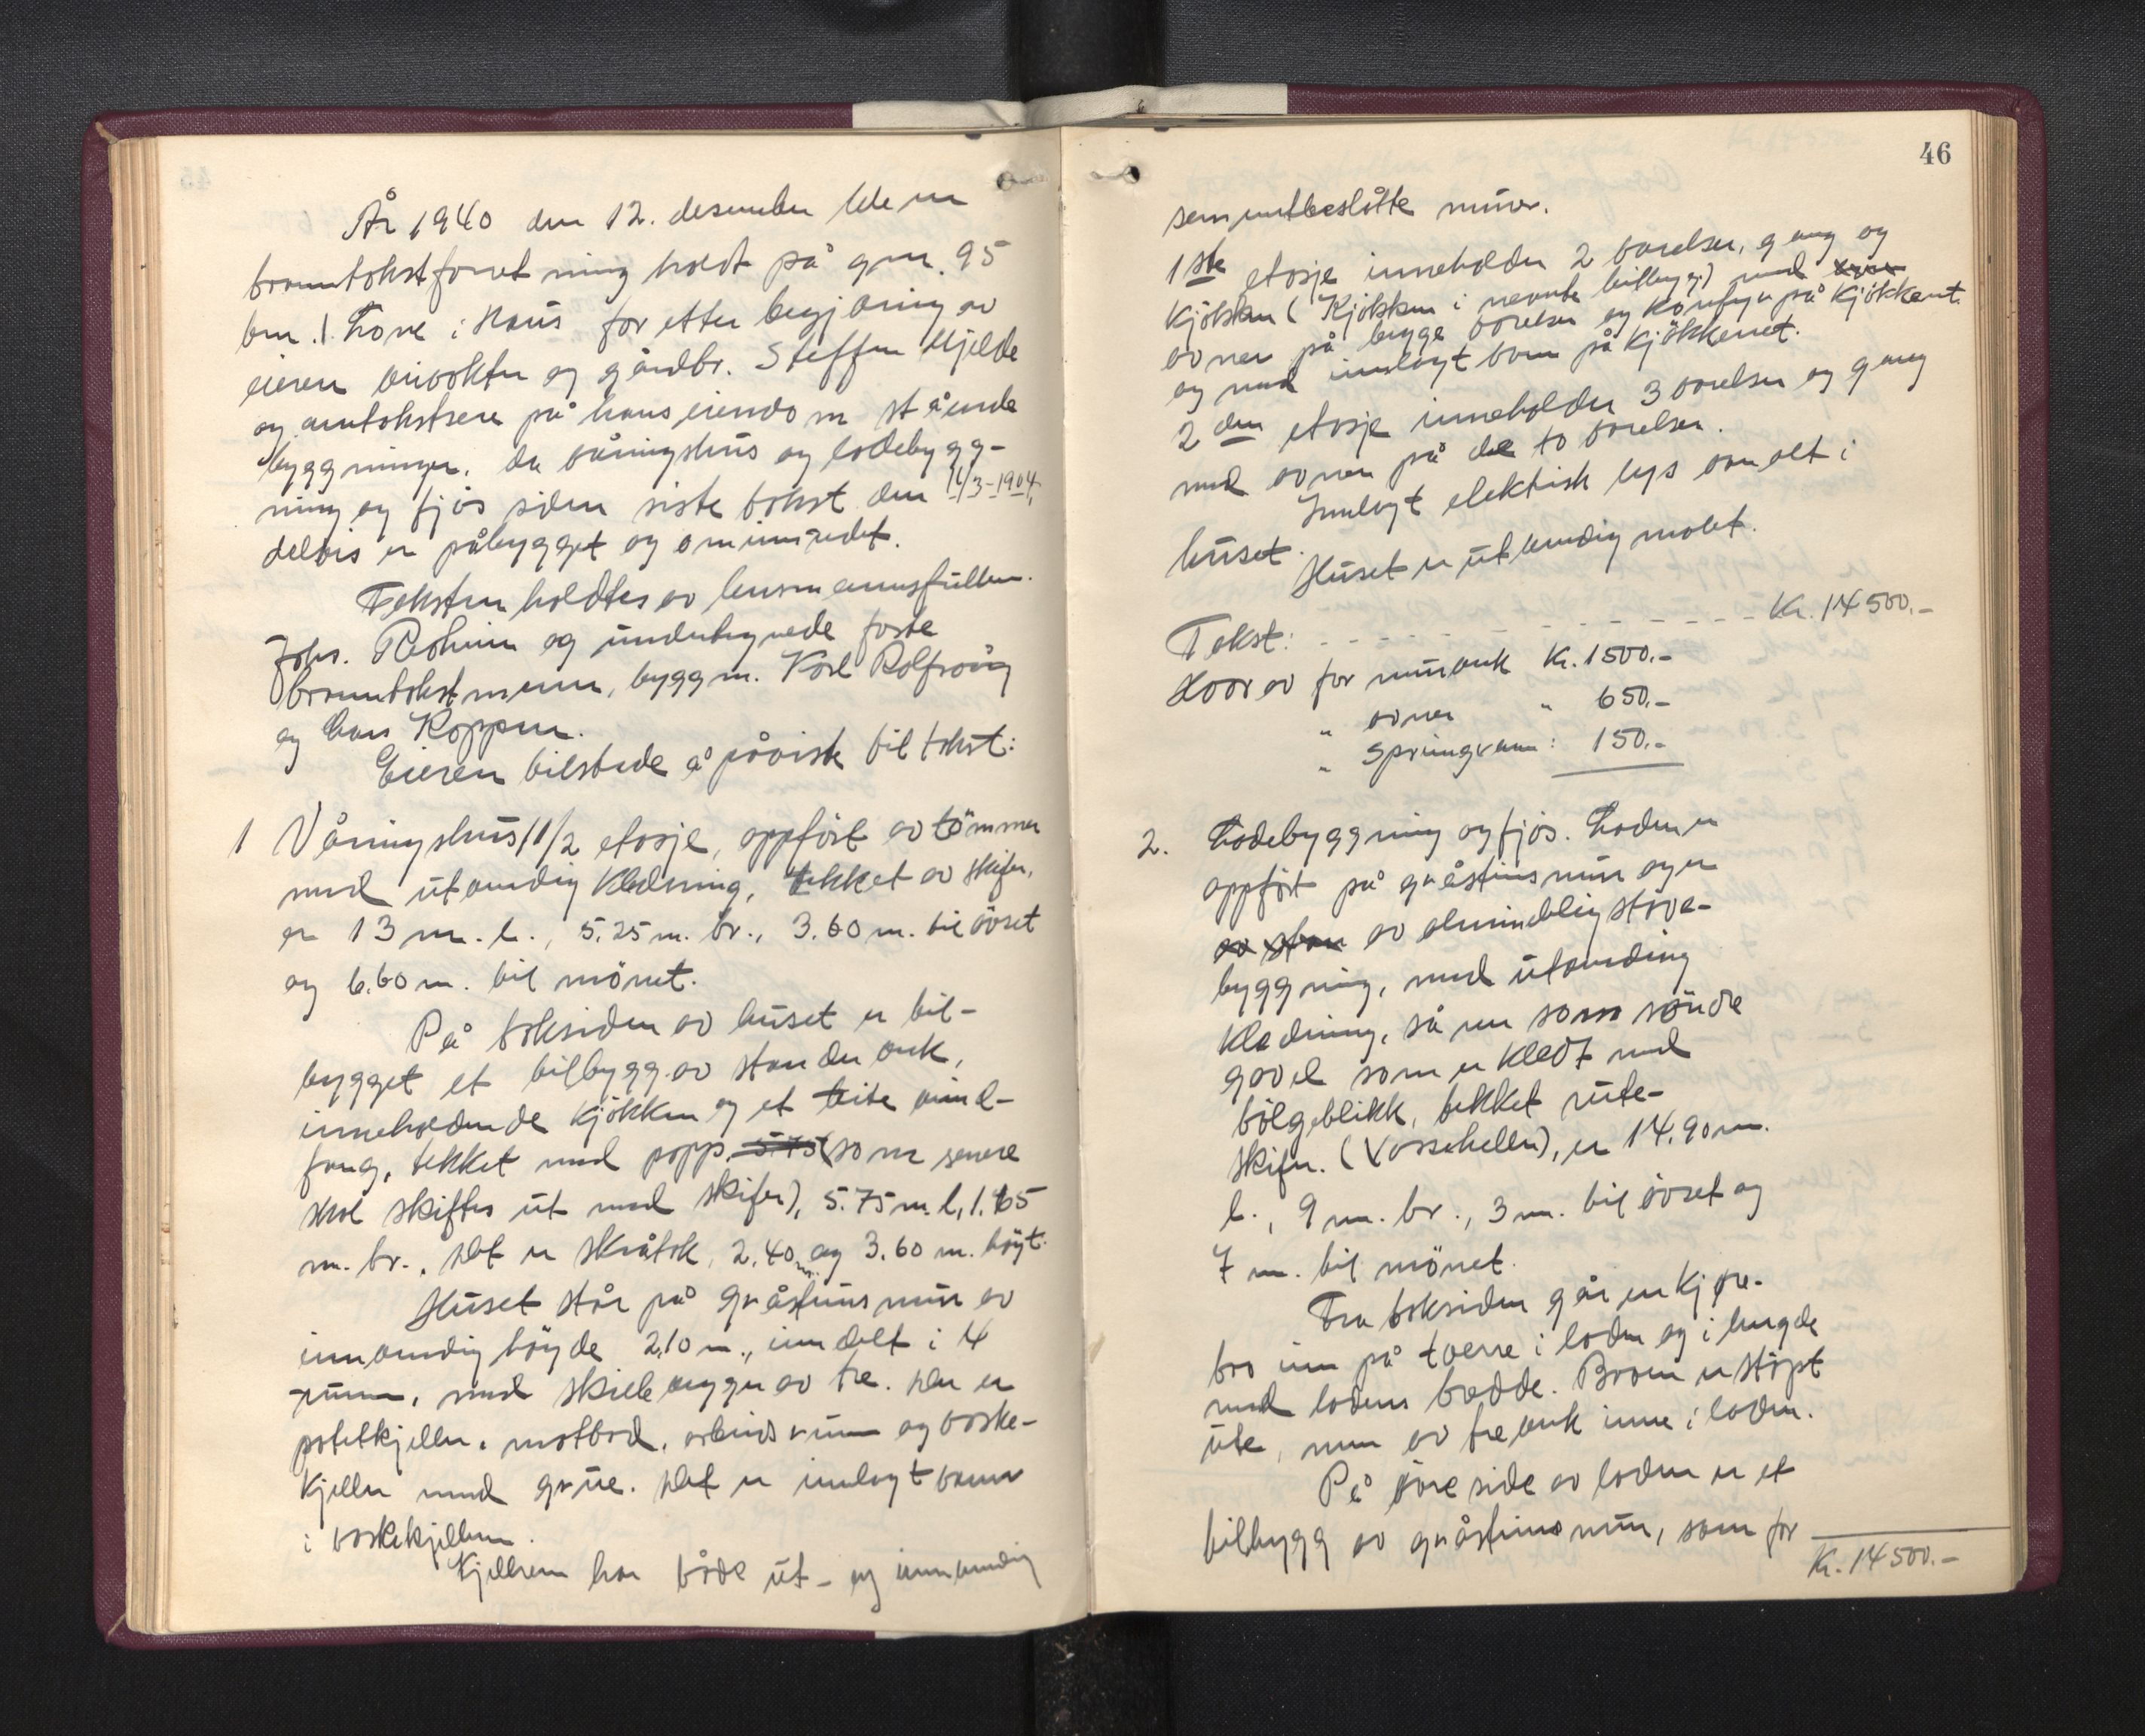 År 1940 den 12. desember ble en
branntakstforretning holdt på gnr. 95
bnr. 1. Tone i Haus for etter begjæring av
eieren avisvokter og gårdbr. Steffen Mjelde
og omtakstsere på hans eiendom stående
byggninger, da våningshus og lödebygg-
ning og fjös siden siste takst den 11/3-1904,
delvis er påbygget og ominnredet.
Taksten holdtes av lensmannsfullm.
Johs. Reheim og undertegnede faste
branntakstmenn, byggm. Karl Rolfsvåg
og Lars Koppen.
Eieren tilstede å påviste til takst:
1 Våningshus 1 1/2 etasje, oppfört av tömmer
med utvendig kledning, tekket av skifer,
er 13 m. l., 5.25 m. br., 3.60 m. til övset
og 6.60 m. til mönet.
På baksiden av huset er til-
bygget et tilbygg av standerverk,
inneholdende kjökken og et lite vind-
fang, tekket med papp, 5.75 (som senere
skal skiftes ut med skifer), 5.75 m. l, 1.65
m. br., Det er skråtak, 2.40 m. og 3.60 m. höyt.
Huset står på gråstensmur av
innvendig höyde 2,10 m., inndelt i 4
rum, med skillevegger av tre. Der er
potetkjeller, matbod, arbeidsrum og vaske-
kjeller med grue. Det er innlagt vann
i vaskekjelleren.
Kjelleren har både ut- og innvendig
46
sementbeslåtte murer.
1ste etasje inneholder 2 værelser, gang og
kjökken (Kjökken i nevnte tilbygg) med
ovner på begge værelser og komfyr på kjökkent
og med innlagt vann på kjökkenet.
2den etasje inneholder 3 værelser og gang
med ovner på de to værelser.
Innlagt elektrisk lys overalt i
huset.
Huset er utvendig malt.
Takst: - - - - - - - - - - - Kr. 14500.-
Hvorav for murverk Kr. 1500.-
" ovner " 650.-
" Springvann: 150.-
2. Lödebyggning og fjös. Löden er
oppfört på gråstensmur og er
av stav av almindelig stave-
byggning, med utvendig
kledning, så nær som söndre
gavel som er kledt med
bölgeblikk, tekket rute-
skifer. (Vosseheller), er 14.90 m.
l., 9 m. br., 3 m. til övset og
7 m. til mönet.
Fra baksiden går en kjöre-
bro inn på tverre i löden og i lengde
med lödens bredde. Broen er stöpt
ute, men av treverk inne i löden.
På övre side av löden er et
tilbygg av gråstensmur, som for
Kr. 14500.-